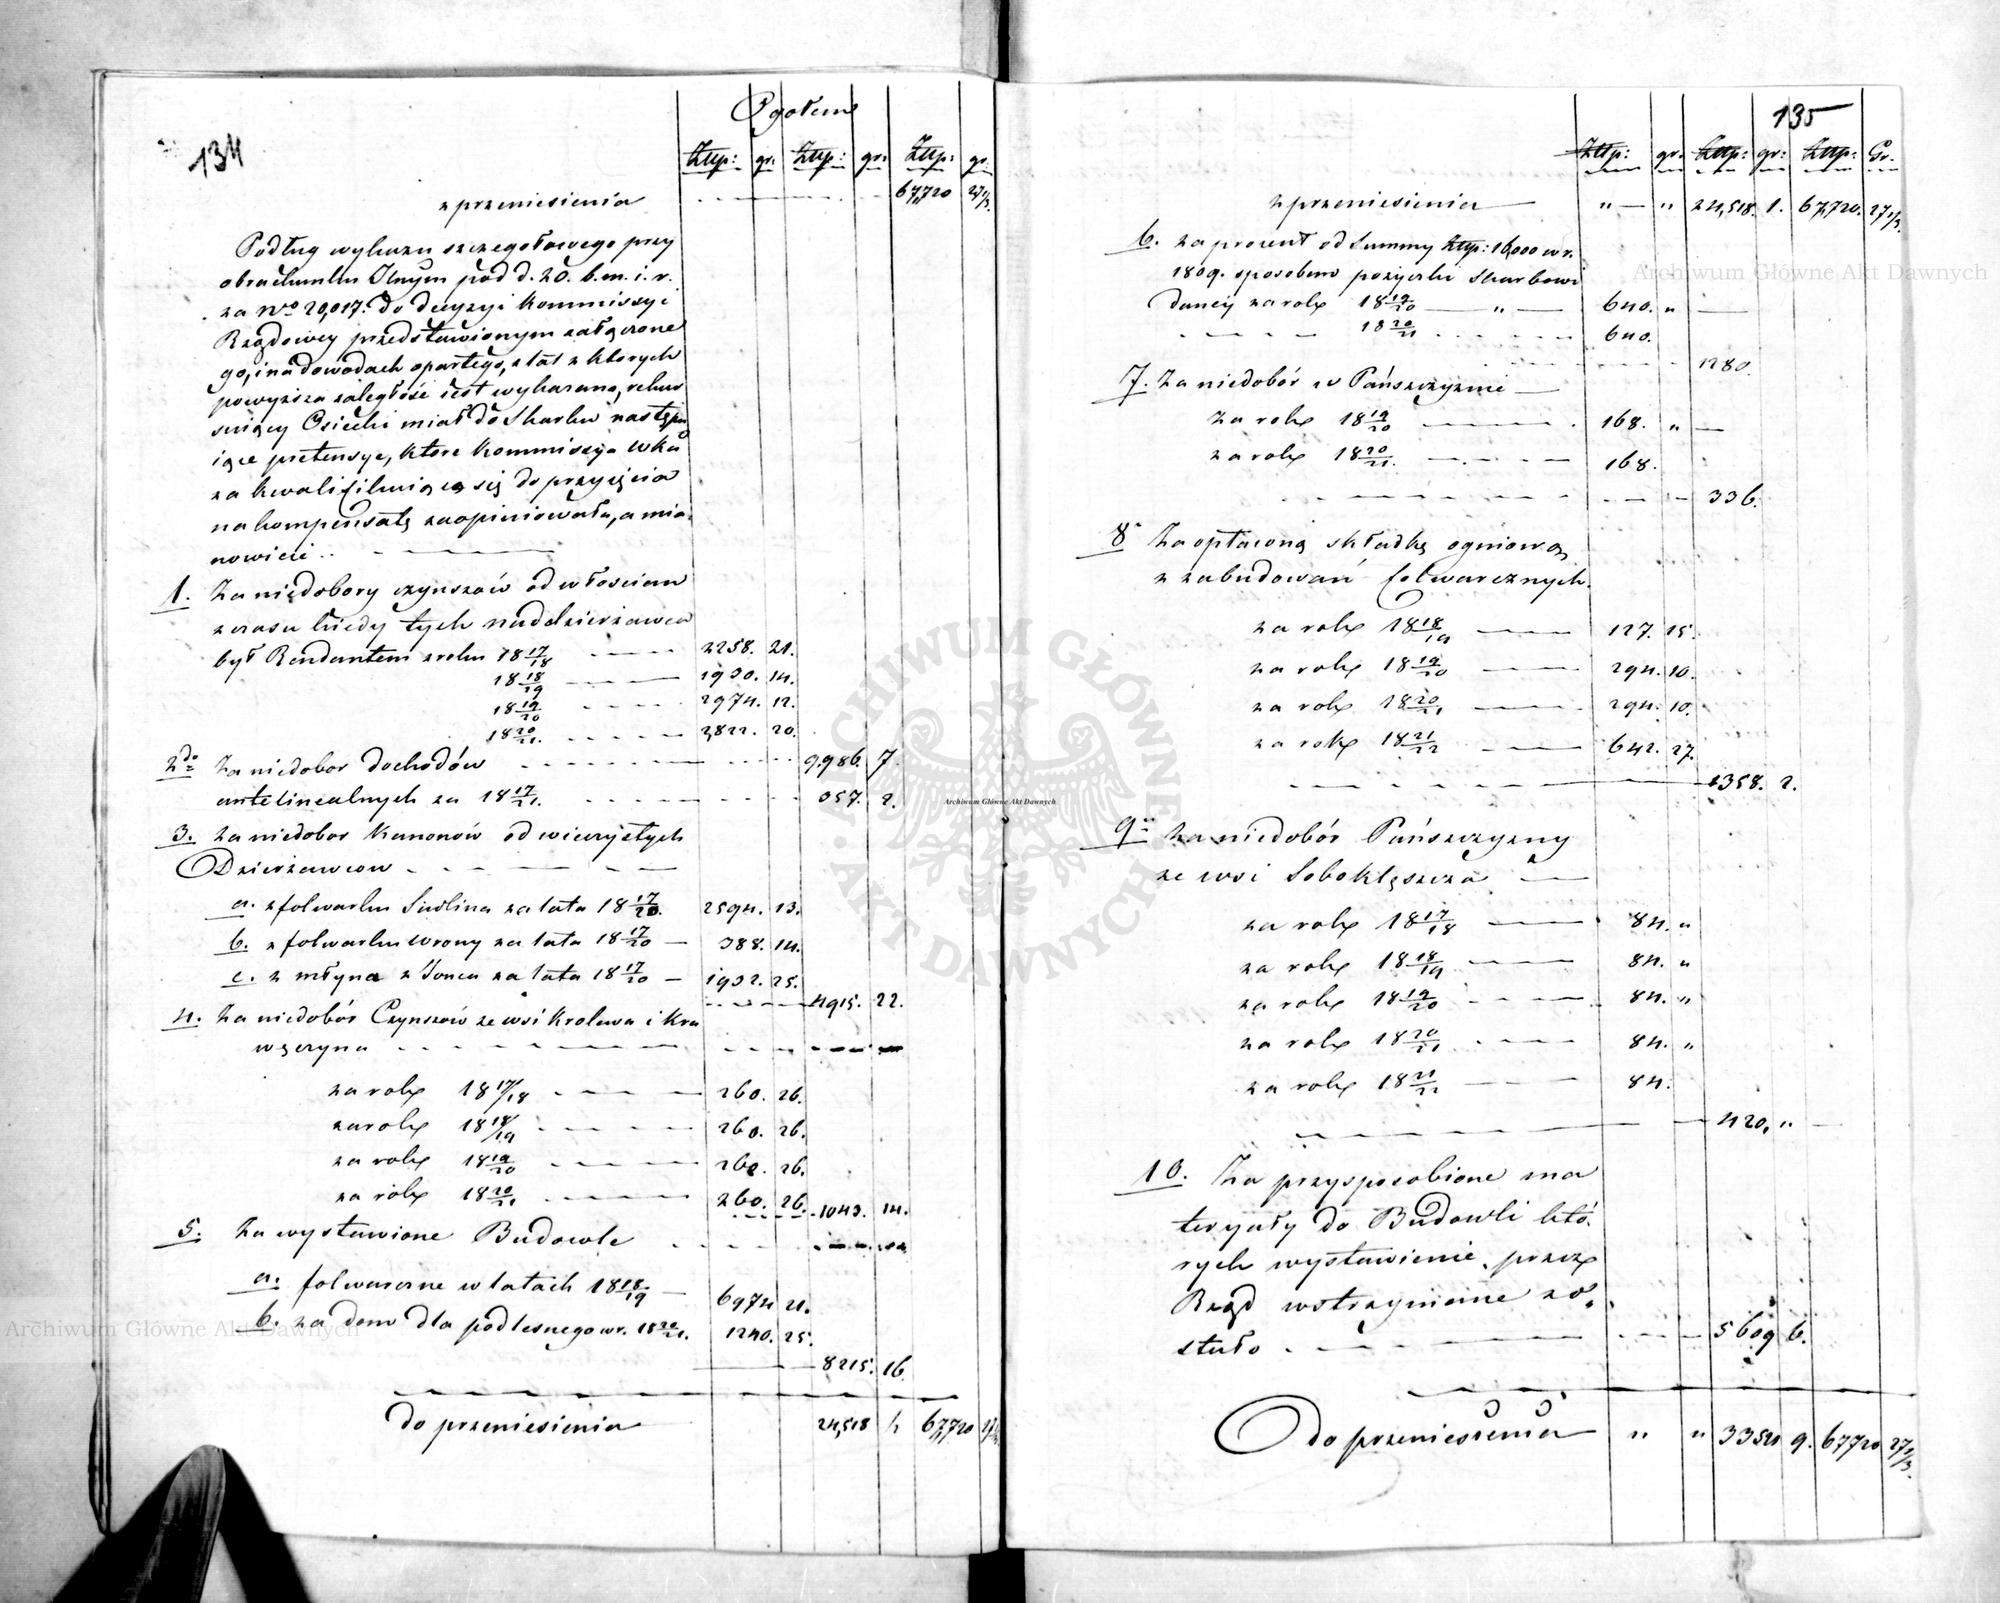 134
Ogołem
Złłp: gr. Złłp: gr: Złłp: gr.
z przeniesienia 67,720 27 1/3.
Podług wykazu szczegołowego przy
obrachunku Ilnym pod d. 20. b.m. i. r.
za Nro 20,017. do decyzyi Kommissyi
Rządowey przedstawionym załączone
go, i na dowodach opartego, z lat z ktorych
powyższa zaległość iest wykazana, rekur
suiący Osiecki miał do Skarbu następu
iące pretensye, ktore Kommissya Wka
za kwalifikuiące się do przyięcia
na kompensatę zaopiniowała, a mia
nowicie ..
1. Za niedobory czynszów od włoscian
z czasu kiedy tych naddzierżawca
był Rendantem z roku 18 17/18 2258. 21.
18 18/19 1930. 14.
18 19/20 2974. 12.
18 20/21. 2,822. 20.
2do Za niedobor dochodów 9,986. 7.
antelinealnych za 18 17/21. 357. 2.
3. Za niedobor Kanonów od wieczystych
Dzierżawcow
a. z folwarku Sudlina za lata 18 17/20. 2594. 13.
b. z folwarku Wrony za lata 18 17/20 388. 14.
c. z młyna z Jonca za lata 18 17/20 1932. 25.
4915. 22.
4. Za niedobór Czynszów ze wsi Krolewa i Kra
węczyna
za rok 18 17/18 260. 26.
za rok 18 18/19 260. 26.
za rok 18 19/20 260. 26.
za rok 18 20/21 260. 26. 1043. 14.
5. Za wystawione Budowle
a. folwarczne w latach 18 18/19 6974 21.
b. za dom dla podlesnego w r. 18 20/21. 1240. 25.
8215. 16.
do przeniesienia 24,518 1. 67,720 27 1/3.
135
Złłp: gr. Złłp: gr: Złłp: Gr.
z przeniesienia " " 24,518. 1. 67,720. 27 1/3.
6. za procent od Summy Złłp: 16,000 w r.
1809. sposobem pożyczki Skarbowi
daney za rok 18 19/20 " 640. "
18 20/21 640.
1280.
7. Za niedobór w Pańszczyznie
Za rok 18 19/20 168. "
za rok 18 20/21. 168.
336.
8 Za opłaconą składkę ogniową
z zabudowań folwarcznych.
za rok 18 18/19 127. 15.
za rok 18 19/20 294. 10.
za rok 18 20/21 294. 10.
za rok 18 21/22 642. 27.
1358. 2.
9 Za niedobór Pańszczyzny
ze wsi Sobokleszcza
za rok 18 17/18 84. "
za rok 18 18/19 84. "
za rok 18 19/20 84. "
za rok 18 20/21 84. "
za rok 18 21/22 84.
420. "
10. Za przysposobione ma
teryały do Budowli któ
rych wystawienie przez
Rząd wstrzymane zo
stało 5609 6.
do przeniesienia " " 33521 9. 67720 27 1/3.
Archiwum Główne Akt Dawnych
Archiwum Główne Akt Dawnych
Archiwum Główne Akt Dawnych
ARCHIWUM GŁÓWNE
AKT DAWNYCH